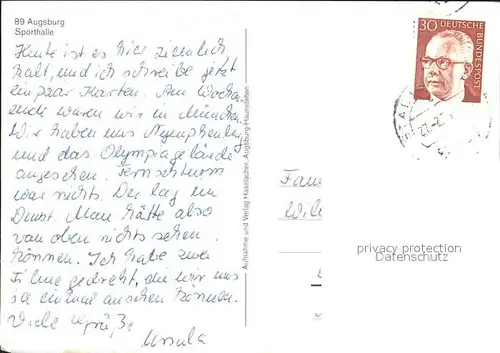 89 Augsburg
Sporthalle
Heute ist es hier ziemlich
kalt, und ich schreibe jetzt
ein paar Karten. Am Wochen
ende waren wir in München.
Wir haben uns Nymphenburg
und das Olympiagelände
angesehen. Fernsehturm
war nichts. Der lag im
Dunst. Man hätte also
von oben nichts sehen
können. Ich habe zwei
Filme gedreht, die wir uns
ja einmal ansehen können.
Viele Grüße
Ursula
Aufnahme und Verlag Hasslacher, Augsburg-Haunstetten
30 DEUTSCHE BUNDESPOST
Fam
Wil
privacy protection
Datenschutz